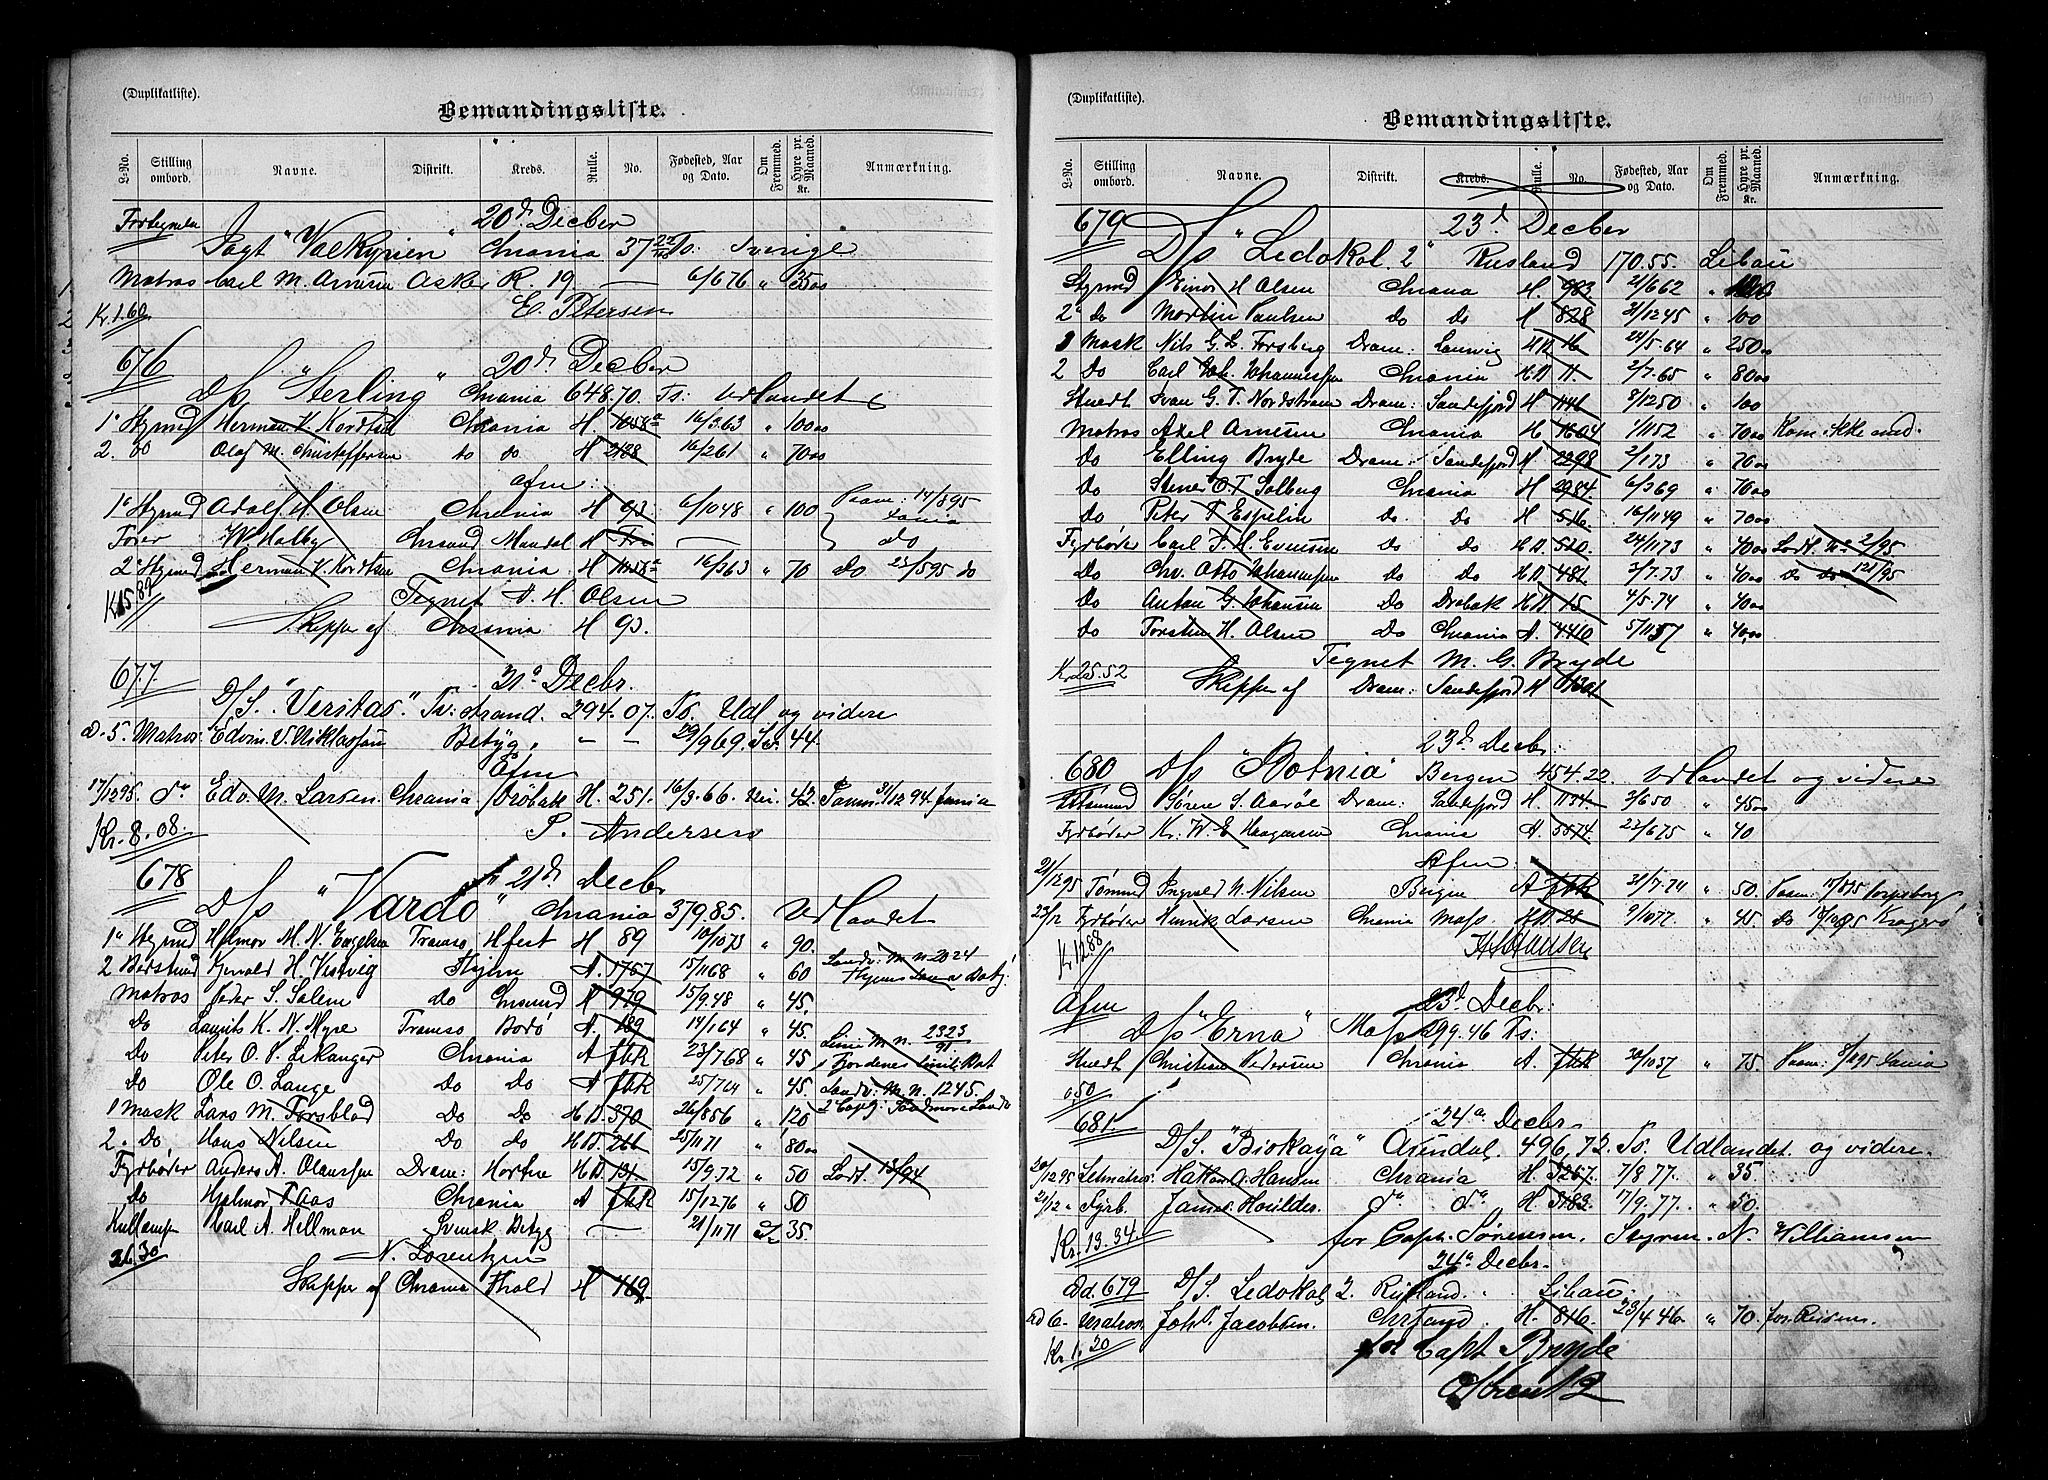 (Duplikatliste).
Bemandingsliste.
L-No. Stilling ombord. Navne. Distrikt. Kreds. Rulle. No. Fødested, Aar og Dato. Om Fremmed. Hyre pr. Maaned. Kr. Anmærkning.
20d Decber
Jagt "Valkyrien" Chrania 37 Ts. Sverige
Matros Carl M. Arnesen Asker R. 19 — 6/6 76 " 35 00
Kr. 1.60 E. Petersen
676 20d Decber
D/S "Sterling" Chrania 648.70 Ts: Udlandet
1e Styrmd Herman V. Kordtsen Chrania H. 1058a 16/3 63 " 100 00
2. Do Olaf M. Christoffersen do do H 2188 16/2 61 " 70 00
Afm:
1e Styrmd Adolf H Olsen Chrania H 93 6/10 48 " 100 Paam: 14/3 95
Fører W. Halby Chrsund Mandal H — do
2e Styrmd Herman V. Kordtsen Chrania H 1058a 16/3 63 " 70 do 23/5 95 do
Kr 15.89 Tegnet A. H. Olsen
Skipper af Chrania H 93.
677 21d Decbr.
D/S. "Veritas." Tv: strand. 294.07. Ts. Udl og videre
d. 5. Matros: Edvin V. Niklassen Betyg. — — 29/9 69. Sv. 44.
Afm
17/12 95. do Edv. M. Larsen. Chrania Drøbak H. 251. 16/3. 66. 42. Paam: 31/12 94
Kr. 8.08. S. Andersen
678 21d Decbr
D/S "Vardø" Chrania 379.85. Udlandet
1e Styrmd Hjalmar M. N. Engelsen Tromsø Hfest H 89 10/10 73 " 90.
2 Bestmd H. Vestvig A. 1757 15/11 68 " 60 Landv: M. n. 2024
Matros Peder S. Salem do Chrsund A 979 15/9. 48 " 45.
do Laurits K. N. Myre Tromsø Bodø A. 189 14/1 64 " 45. Linie M. n. 2323
do Peter O. V. Lekanger Chrania A fbk 23/7 68 " 45
do Ole O. Lange Do Do A fbk 25/7 64 " 45. Landv: M. n. 1245.
1 Mask Lars M. Forsblad Do Do HD. 370 26/8 56 " 120
2. Do Hans Nilsen Do do HD. 266 25/11 71 " 80 00
Fyrbøder Anders A. Olaussen Dram: Horten HD. 131 15/9. 72 " 50 Lodt. 13/94
do Hjalmar Faas Chrania A fbk 15/12 76 " 50
Carl A. Hellman Svensk Betyg — 21/11 71 35.
26.30 N. Lorentzen
Skipper af Chrania Thold H 469
(Duplikatliste).
Bemandingsliste.
L-No. Stilling ombord. Navne. Distrikt. Kreds. Rulle. No. Fødested, Aar og Dato. Om Fremmed. Hyre pr. Maaned. Kr. Anmærkning.
679 23d Decber
D/S "Ledokol 2" Rusland 170.55. Libau
Styrmd Einar H Olsen Chrania H. 983 21/6 62 "
2e do Martin Paulsen do do H 828 31/12 45 " 100
Mask Nils G. L. Forsberg Dram: Laurvig HD 16 24/5. 64 " 250 00
2 Do Carl Joh. Johannessen Chrania HD 11. 2/7. 65 " 80 00
Stuedt Svan G. T. Nordstrøm Dram: Sandefjord H 1146 8/12 50 " 100
Matros Axel Arnesen Chrania H 1604 1/11 52 " 70 00 Kom ikke med.
do Elling Bryde Dram: Sandefjord H 2298 2/1 73 " 70 00
do Stener O. T. Solberg Chrania H 2984 6/3 69 " 70 00
do Peter T Espelin Do. Do H 516 16/11 49 " 70 00
Fyrbøder Carl F. H. Evensen Do Do HD. 520 24/11 73 " 40 00 Lodt. No 2/95
Do Chr. Otto Johannessen Do Do HD. 481 3/7. 73 " 40 00 Do do 121/95
Do Anton G. Johansen Do Drøbak HD 15 4/5. 74 " 40 00
do Torsten H. Olsen Do Chrania A. 4410 5/11 57 " 40 00
Kr 25.52 Tegnet M. G. Bryde
Skipper af Dram: Sandefjord H 1301
23d Decbr.
680 D/S "Botnia" Bergen 454.22 Udlandet og videre
Sørene S. Aarøe Dram: Sandefjord H. 1134. 3/6 50 " 45 00
Fyrbøder Kr: W. E. Haagensen Chrania A. 5574. 22/6 75 " 40
Afm:
21/12 95 Tømmd Ingvald N. Nilsen Bergen A fbk 31/7. 71 " 50. Paam: 15/8 95
23/12 Fyrbøder Henrik Larsen Chrania Moss HD 28 9/10 77. " 45. Do Kragerø
Kr 12.88 Hansen
Afm 23d Decbr:
D/S "Erna" Moss 299.46 Ts:
Stuedt Christian Pedersen Chrania A. fbk 20/10 57 " 75. Paam:
0,50
681. 24d Decbr.
D/S. "Biskaya" Arendal. 496,72. Ts. Udlandet og videre.
20/12 95 Letmatros. Håkon A. Hansen Chrania H. 5257. 7/8 77. " 35.
21/12 " Fyrb. James Houlder. do do H 5183. 17/9. 77. " 50.
Kr. 13.34. for Capt. Sørensen. Styrm. N. Williamsen
24d Decbr.
Ad. 679 D/S. Ledokol 2. Rusland. Libau.
ad 6 - Matros. Joh. Jacobsen. Chrsand. H. 816. 23/4 46. " 70. for Reisen.
Kr 1,20 for Capt Bryde